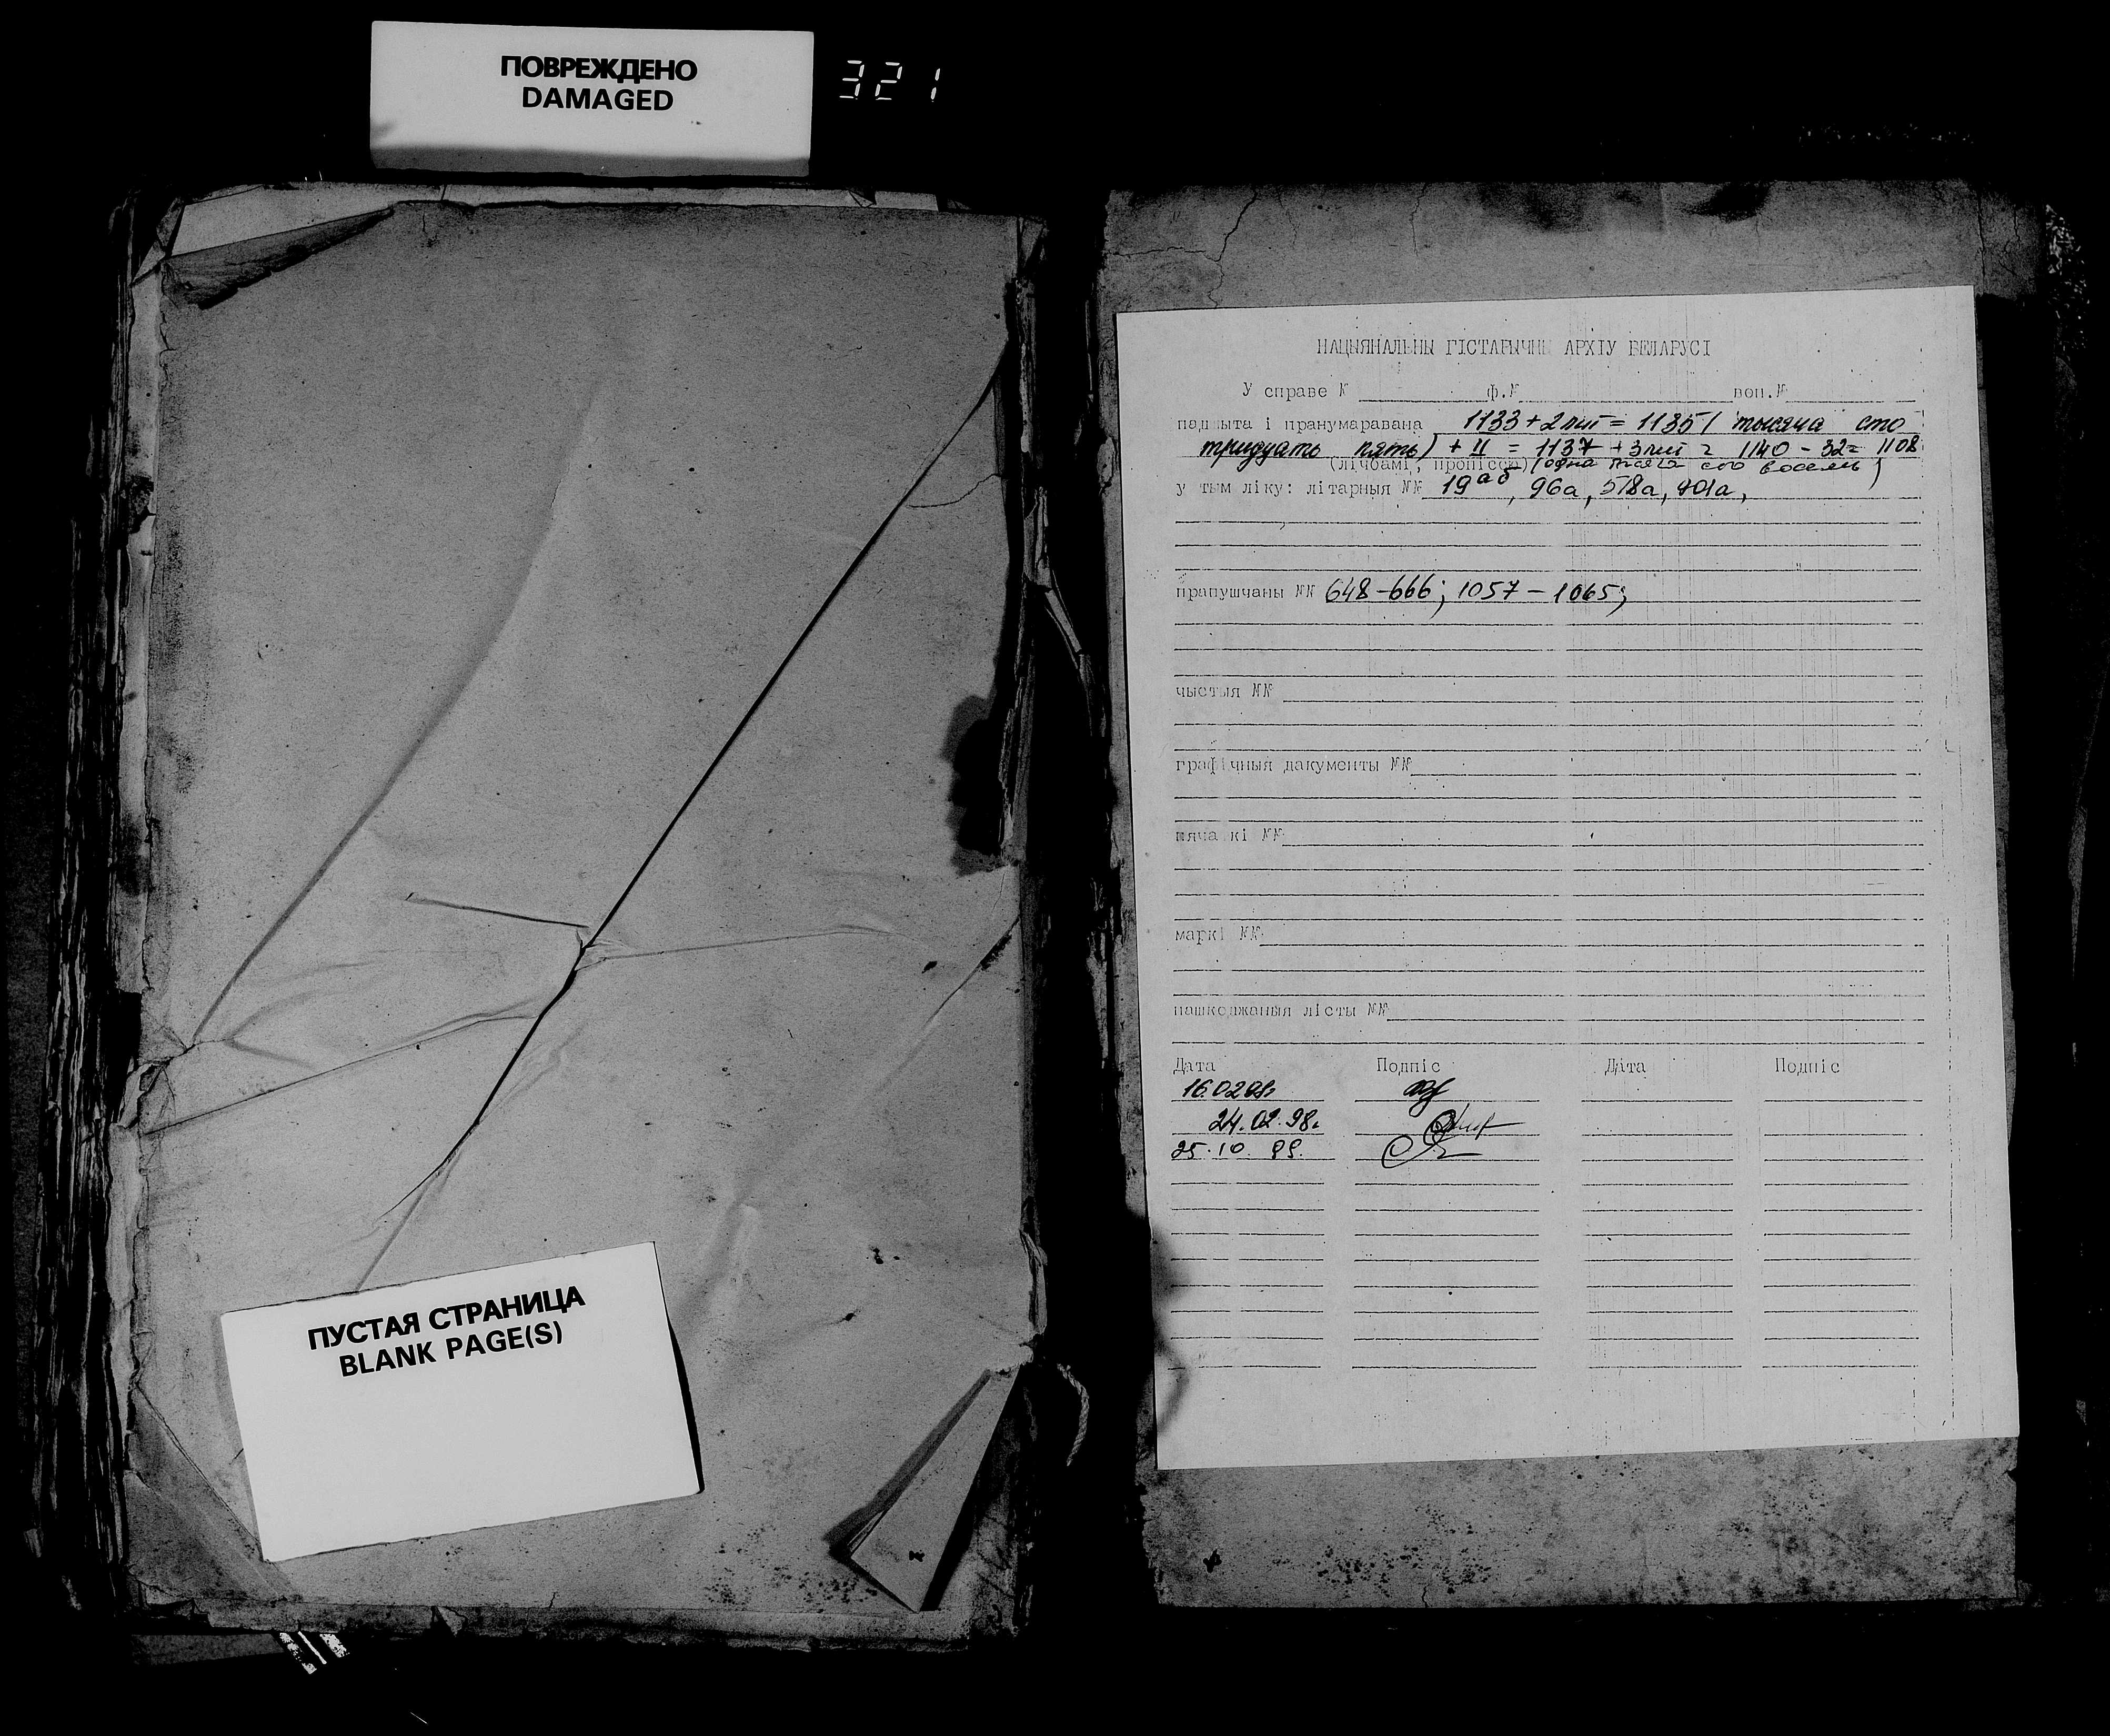 ПОВРЕЖДЕНО
DAMAGED
321
ПУСТАЯ СТРАНИЦА
BLANK PAGE(S)
НАЦЫЯНАЛЬНЫ ГІСТАРЫЧНЫ АРХІУ БЕЛАРУСІ
У справе № ф.№ воп.№
падшыта і пранумаравана 1133+2лит = 1135 ( тысяча сто
тридцать пять) + II = 1137 + 3лит = 1140 - 32= 1108
(лічбамі, пропіссю) (одна тысяча сто восемь)
у тым ліку: літарныя №№ 19аб, 96а, 578а, 701а,
прапушчаны №№ 648-666; 1057-1065;
чыстыя №№
графічныя дакументы №№
пячаткі №№
маркі №№
пашкоджаныя лісты №№
Дата Подпіс Дата Подпіс
16.02.98г
24.02.98г
25.10.99.